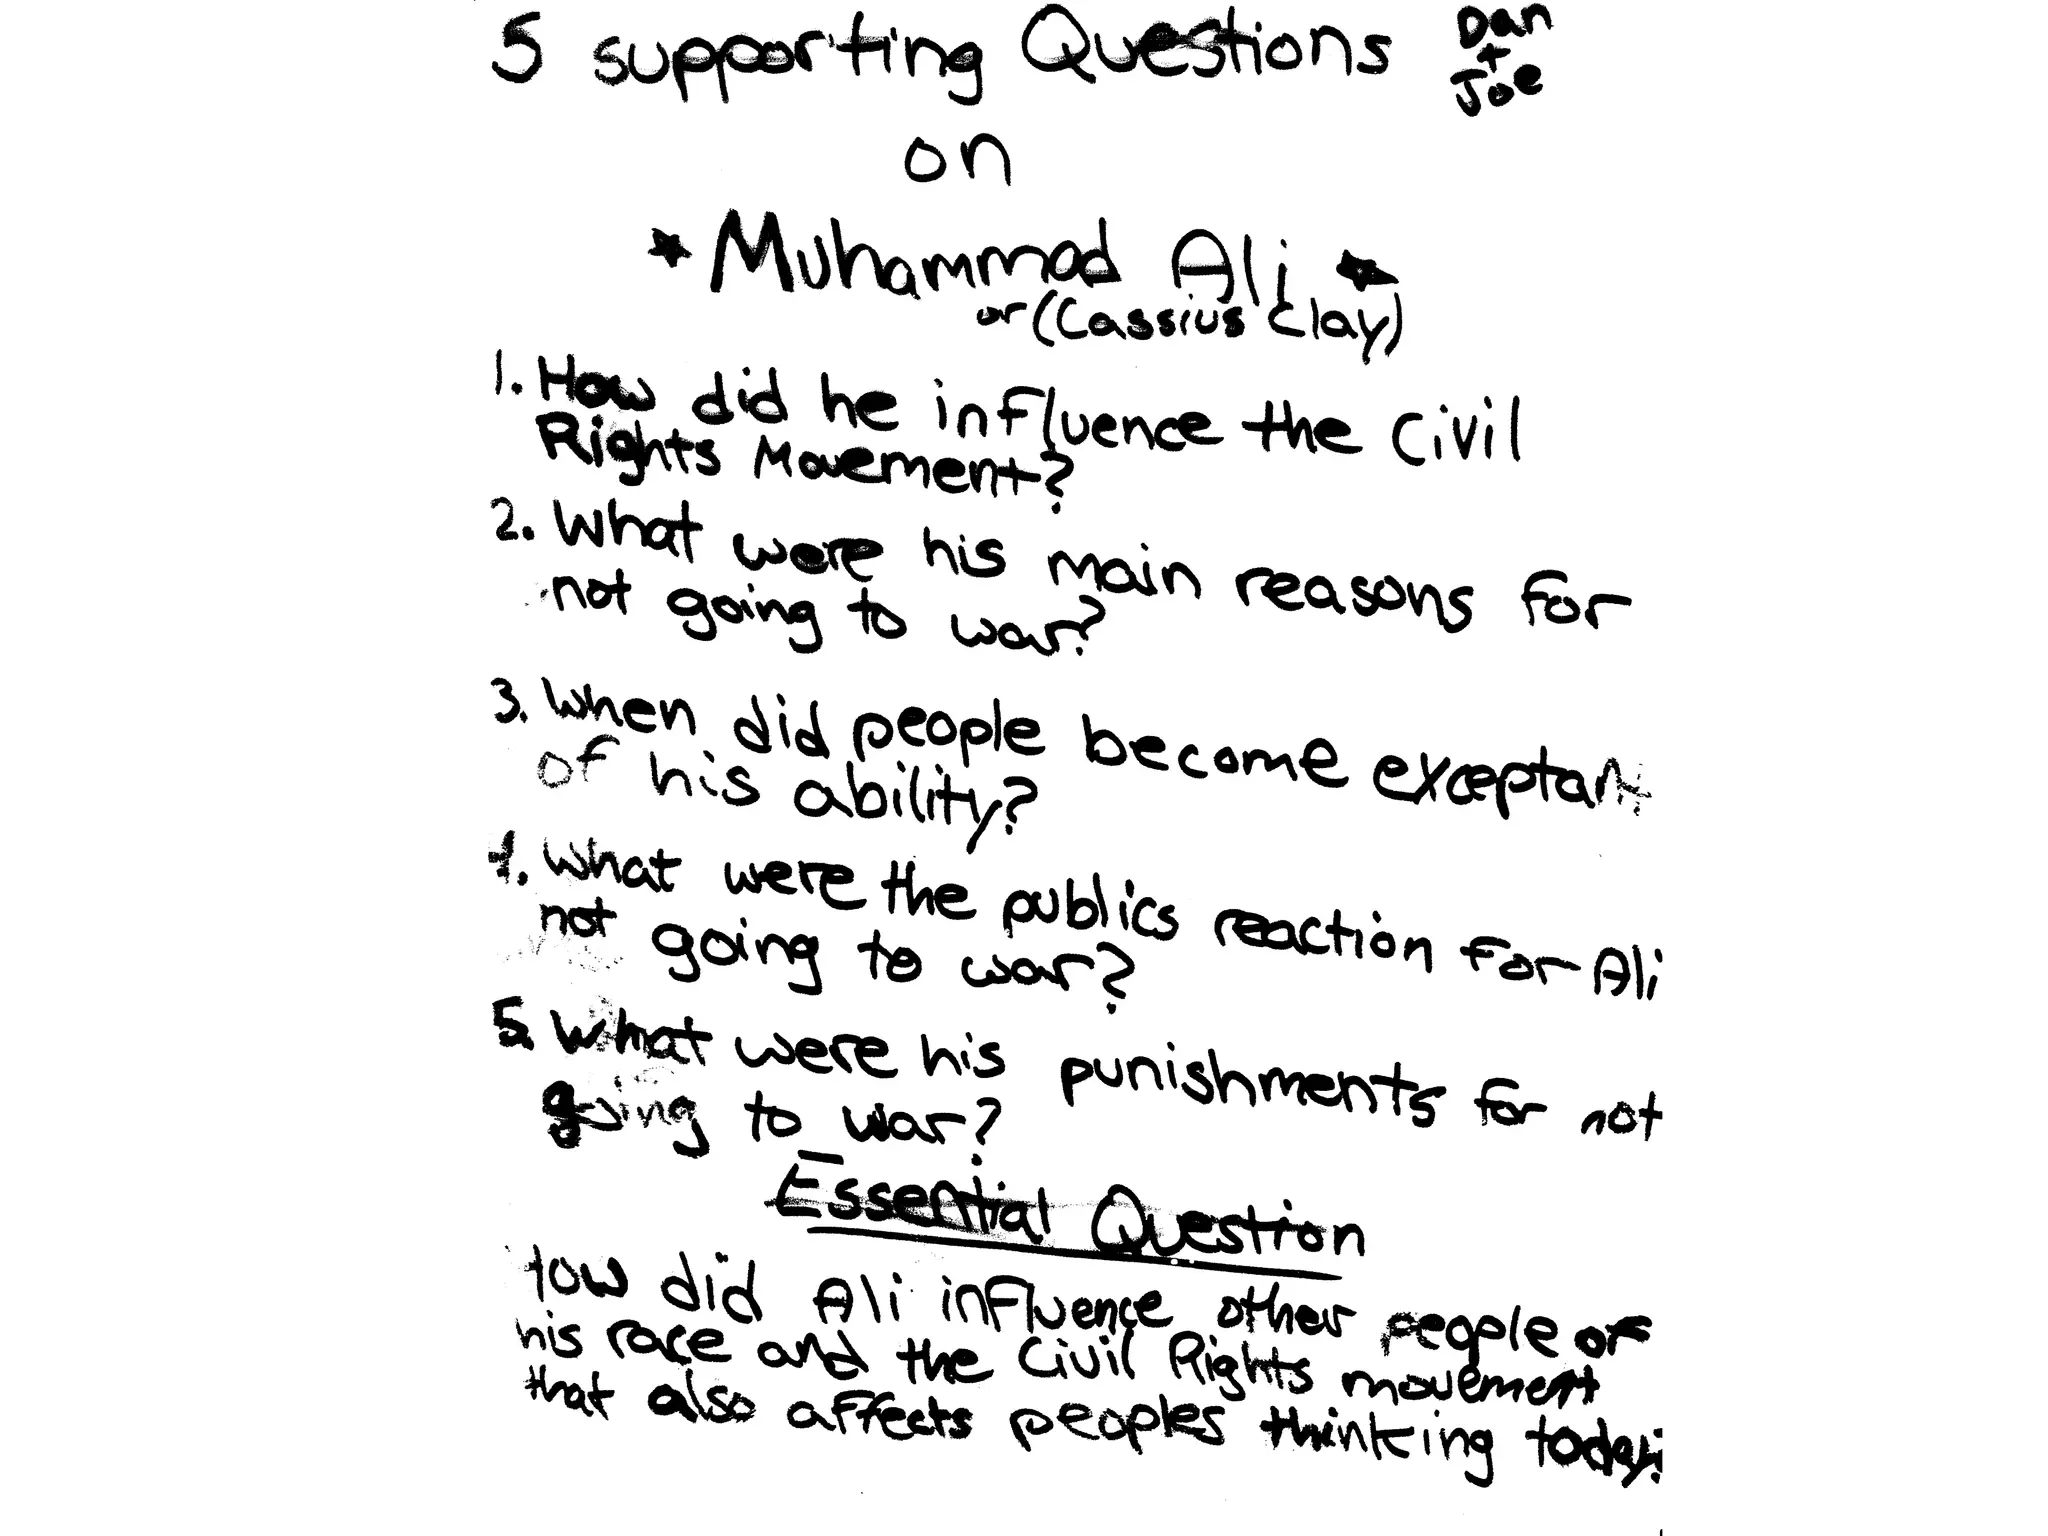 5 supporting Questions
Dan
+
Joe
on
★ Muhammad Ali ★
or (Cassius Clay)
1. How did he influence the Civil
Rights Movement?
2. What were his main reasons for
not going to war?
3. When did people become exceptant
of his ability?
4. What were the publics reaction for Ali
not going to war?
5. What were his punishments for not
going to war?
Essential Question
How did Ali influence other people of
his race and the Civil Rights movement
that also affects peoples thinking today?